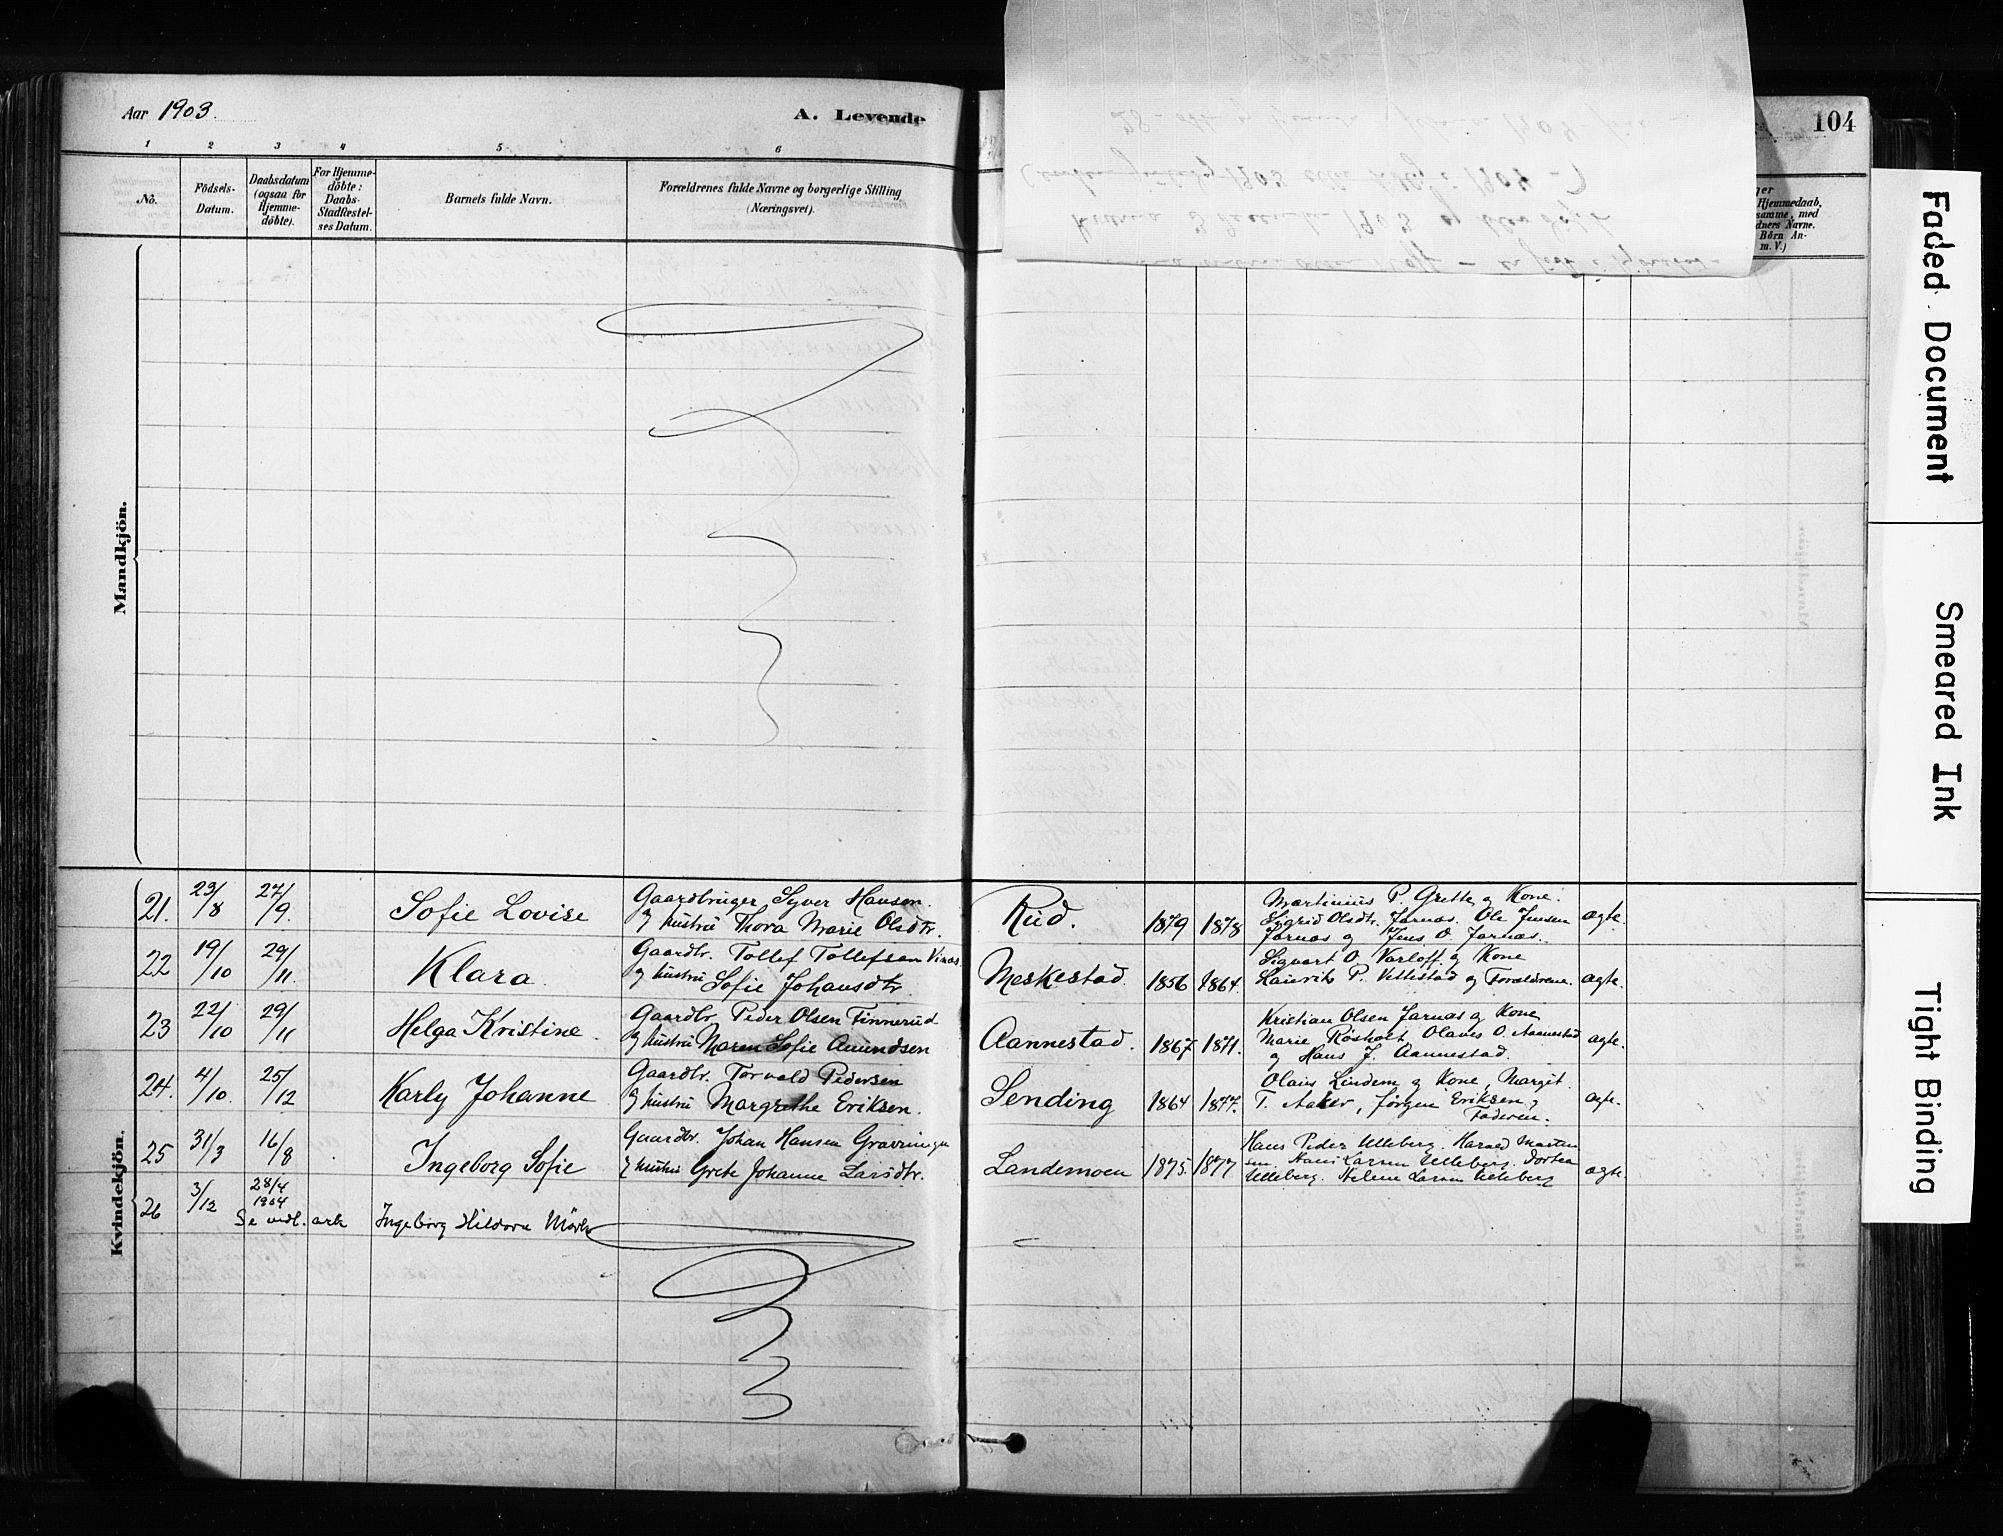 Aar 1903.
A. Levende
104
1 2 3 4 5 6
No.
Födsels-
Datum.
Daabsdatum
(ogsaa for
Hjemme-
döbte).
For Hjemme-
döbte:
Daabs-
Stadfæstel-
ses Datum.
Barnets fulde Navn.
Forældrenes fulde Navne og borgerlige Stilling
(Næringsvei).
Hjemmedaab,
samme, med
Navne.
Börn An-
m. V.)
Mandkjön.
Kvindekjön.
21. 23/8 27/9. Sofie Lovise
Gaardbruger Syver Hansen.
og hustru Thora Marie Olsdtr.
Rud. 1879 1878
Martinius P. Grette og Kone.
Sigrid Olsdtr. Jarnæs. Ole Jensen
Jarnæs og Jens O. Jarnæs.
ægte.
22 19/10 29/11. Klara.
Gaardbr. Tollef Tollefsen
og hustru Sofie Johansdtr.
Meskestad. 1856 1864.
Sigvart O. Varloff. og Kone
Laurits P. Vettestad og Forældrene.
ægte.
23 22/10 29/11 Helga Kristine.
Gaardbr. Peder Olsen Finnerud
og hustru Maren Sofie Amundsen
Aannestad. 1867 1871.
Kristian Olsen Jarnæs og Kone
Marie Røsholt, Olaves O. Aannestad
og Hans J. Aannestad.
ægte.
24. 4/10. 25/12 Karly Johanne
Gaardbr. Torvald Pedersen
og hustru Margrethe Eriksen.
Sending 1864 1877.
Olaus Lindem og Kone, Margit
T. Aaker, Jörgen Eriksen,
Faderen.
ægte.
25 31/3 16/8 Ingeborg Sofie
Gaardbr. Johan Hansen Gravningen
og hustru Grete Johanne Larsdtr.
Landemoen 1875. 1877
Hans Peder Ulleberg. Harald Marten
sen, Hans Larsen Ulleberg. Dortea
Ulleberg. Helene Larsen Ulleberg
ægte.
26 3/12 28/4
1904
Se vedl. ark Ingeborg Hildora
Faded Document
Smeared Ink
Tight Binding